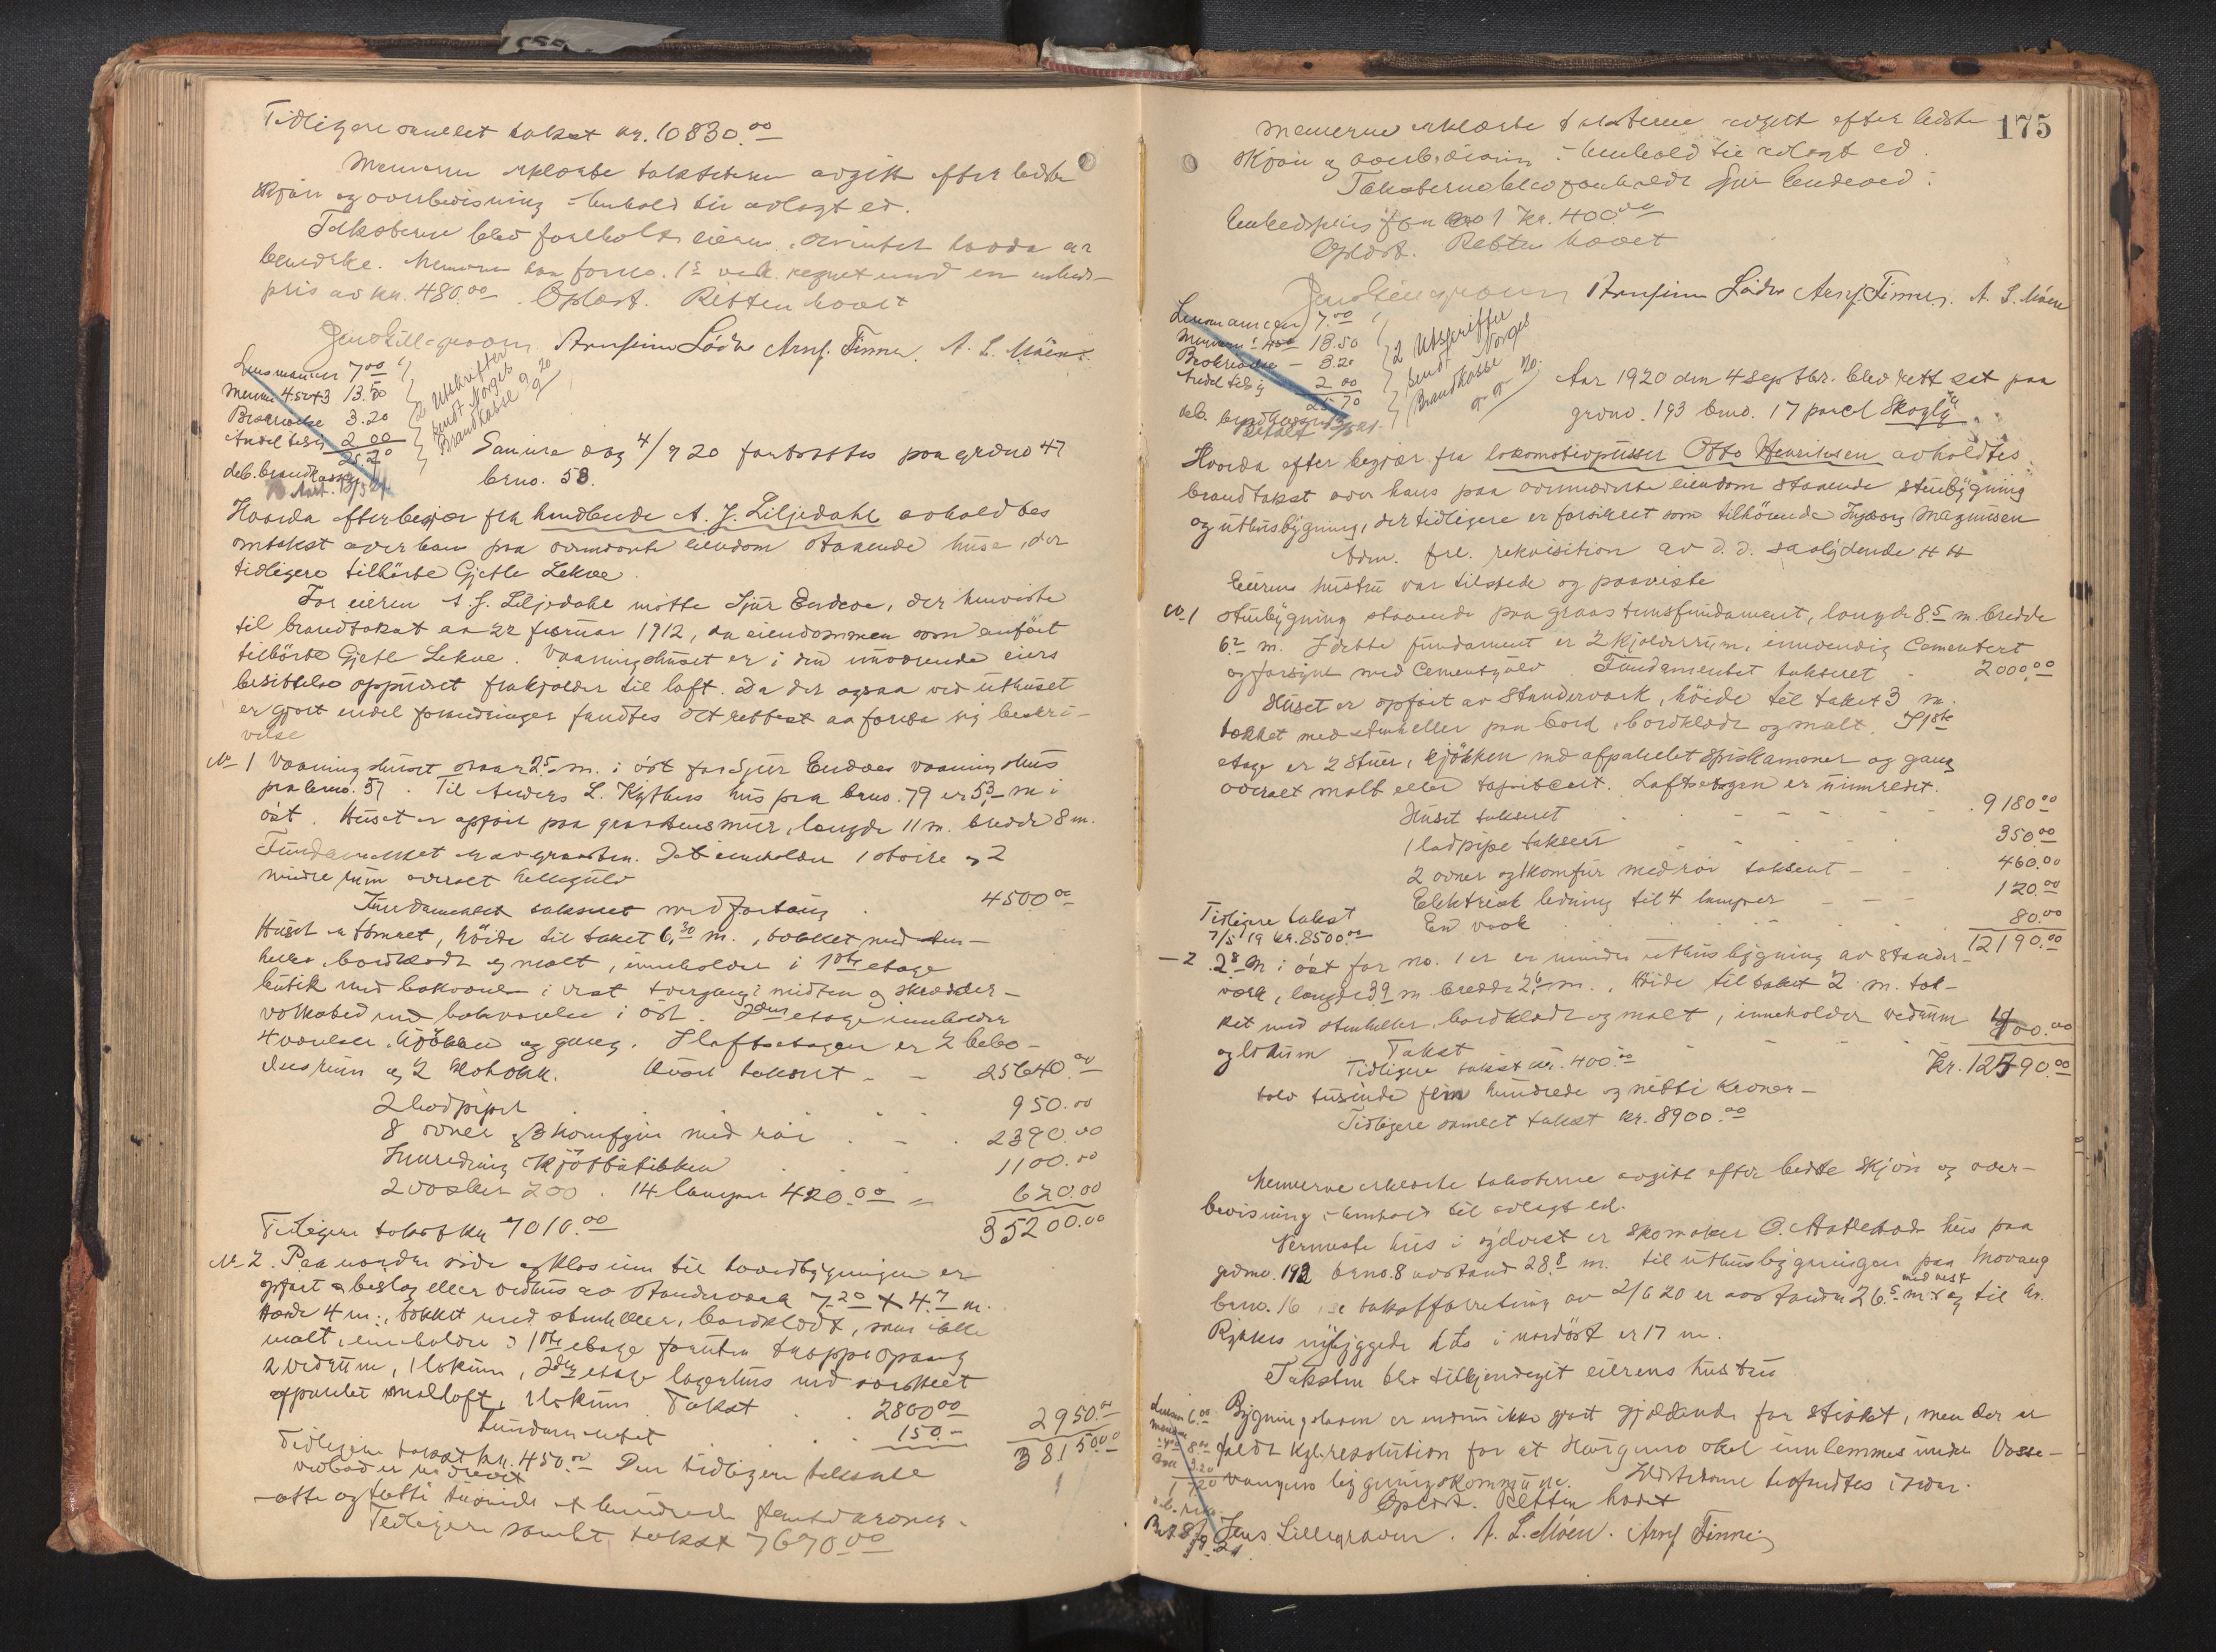 Tidligere samlet takst kr. 10830.00
Mennene erklærte taksterne avgitt efter bedste
skjøn og overbevisning i henhold til avlagt ed.
Taksterne blev foreholdt eieren, som intet hadde at
bemerke. Mennene har for no. 1 's vedk. regnet med en enheds-
pris av kr. 480.00. Oplæst. Retten hævet
Jens Lillegraven Arnfinn Lødve Arnf. Finne. A. L. Möen.
Lensmannen 7.00
Mennene 4.50+3 13.50
Beskrivelse 3.20
Andel tilsig. 2.00
25.70
deb. brandkassen
2 Utskrifter
sendt Norges
Brandkasse 9/9 20
Samme dag 4/9 20 fortsattes paa grdno 47
brno. 58.
Hvorda efter begjær fra handlende A. J. Liljedahl avholdtes
omtakst over hans paa ovennævnte eiendom staaende huse, der
tidligere tilhörte Gjetle Lekve.
For eieren A. J. Liljedahl mötte Sjur Endeve, der henviste
til brandtakst av 22 februar 1912, da eiendommen som anført
tilhörte Gjetl Lekve. Vaaningshuset er i den nuværende eiers
besittelse oppudset fra kjælder til loft. Da der ogsaa ved uthuset
er gjort endel forandringer fandtes det rettest aa foreta ny beskri-
velse
No 1 Vaaningshuset staar 25 m. i öst for Sjur Endeves vaaningshus
paa brno. 57. Til Anders L. Kythes hus paa brno. 79 er 53 m i
öst. Huset er opført paa graastensmur, længde 11 m. bredde 8 m.
Fundamentet er av graasten. Det indeholder 1 større og 2
mindre rum overalt hellegulv
Fundamentet taksert med fortaug 4500.00
Huset er tömret, höide til taket 6.30 m., tækket med sten-
heller, bordklædt og malt, inneholder i 1ste etage
butik med bakværelse i vest tvergang i midten og skrædder-
verksted med bakværelse i öst. 2den etage inneholder
4 værelser, kjökken og gang. I loftsetagen er 2 bebo-
elsesrum og 2 klotskk. Huset taksert 25640.00
2 ladpiper 950.00
8 ovner og 3 komfyrer med rör 2390.00
Innredning i kjötbutikken 1100.00
2 vasker 200. 14 lamper 420.00 620.00
Tidligere takst kr. 7010.00 35200.00
No 2. Paa nordre side og klos inn til hovedbygningen er
opført et beslag eller vedhus av standerværk 7.20 X 4.7 m.
Høide 4 m., tækket med stenheller, bordklædt, men ikke
malt, inneholder i 1ste etage foruten trappeopgang
2 vedrum, 1 lokum, 2den etage lagerhus med særskilt
afpanelet smalloft, 1 lokum. Takst 2800.00
Fundamentet 150.- 2950.00
Tidligere takst kr. 450.00 Den tidligere takserte 38150.00
vedbod er nedrevet
otte og tretti tusinde et hundrede femti kroner.
Tidligere samlet takst 7670.00
175
Mennerne erklærte taksterne avgitt efter bedste
skjøn og overbevisning i henhold til avlagt ed.
Taksterne blev foreholdt Sjur Endeved.
Enhedspris for no 1 kr. 400.00
Oplæst. Retten hævet
Jens Lillegraven Arnfinn Lödve Arnf. Finne. A. L. Möen
Lensmannen 7.00
Mennene 13.50
Beskrivelse 3.20
Andel tilsig 2.00
25.70
deb. brandkassen
Betalt
2 Utskrifter
sendt Norges
Brandkasse
9/9 20.
Aar 1920 den 4 septbr. blev rett sat paa
grdno. 193 brno. 17 parcel Skogly
Hvorda efter begjær fra lokomotivpusser Otto Henriksen avholdtes
brandtakst over hans paa ovennævnte eiendom staaende stuebygning
og uthusbygning, der tidligere er forsikret som tilhörende Ingeborg Magnussen
Adm. frl. rekvisition av d. d. saalydende H H
Eierens hustru var tilstede og paaviste
No 1 stuebygning staaende paa graastensfundament, længde 8.5 m. bredde
6.2 m. I dette fundament er 2 kjelderrum, innvendig Cementert
og forsynt med Cementgulv. Fundamentet taksert 2000.00
Huset er opført av standerværk, höide til taket 3 m.
tækket med stenheller paa bord, bordklædt og malt. I 1ste
etage er 2 stuer, kjökken med afpanelet spiskammer og gang
overalt malt eller tapetsert. Loftsetagen er uinnredet.
Huset taksert 9180.00
1 ladpipe taksert 350.00
2 ovner og 1 komfur med rör taksert 460.00
Elektrisk ledning til 4 lamper 120.00
En vask 80.00
Tidligere takst
7/5 19 kr. 8500.00
12190.00
- 2 2.8 m i öst for no. 1 er en mindre uthusbygning av stander-
værk, længde 3.9 m bredde 2.6 m., Höide til taket 2 m. tæk-
ket med stenheller, bordklædt og malt, inneholder vedrum
og lokum Takst 400.00
Tidligere takst kr. 400.00 Kr. 12590.00
tolv tusinde fem hundrede og nitti kroner -
Tidligere samlet takst kr. 8900.00
Mennerne erklærte taksterne avgitt efter bedste skjön og over-
bevisning i henhold til avlagt ed.
Nermeste hus i sydvest er skomaker O. Aatlestads hus paa
grdno. 193 brno. 8 avstand 28.8 m. til uthusbygningen paa Movang
brno. 16 se takstforretning av 2/6 20 er avstanden 26.5 m med vest og til Kr.
Rykkes nybyggede hus i nordöst er 17 m.
Taksten blev tilkjendegit eierens hustru
Bygningsloven er endnu ikke gjort gjældende for strøket, men der er
faldt kgl. resolution for at Haugmo skal innlemmes under Vosse-
vangens bygningskommune. Ildstederne befandtes i orden.
Oplæst. Retten hævet
Jens Lillegraven. A. L. Möen. Arnf Finne